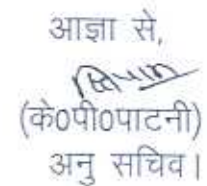 आज्ञा से,
(के0पी0पाटनी)
अनु सचिव।